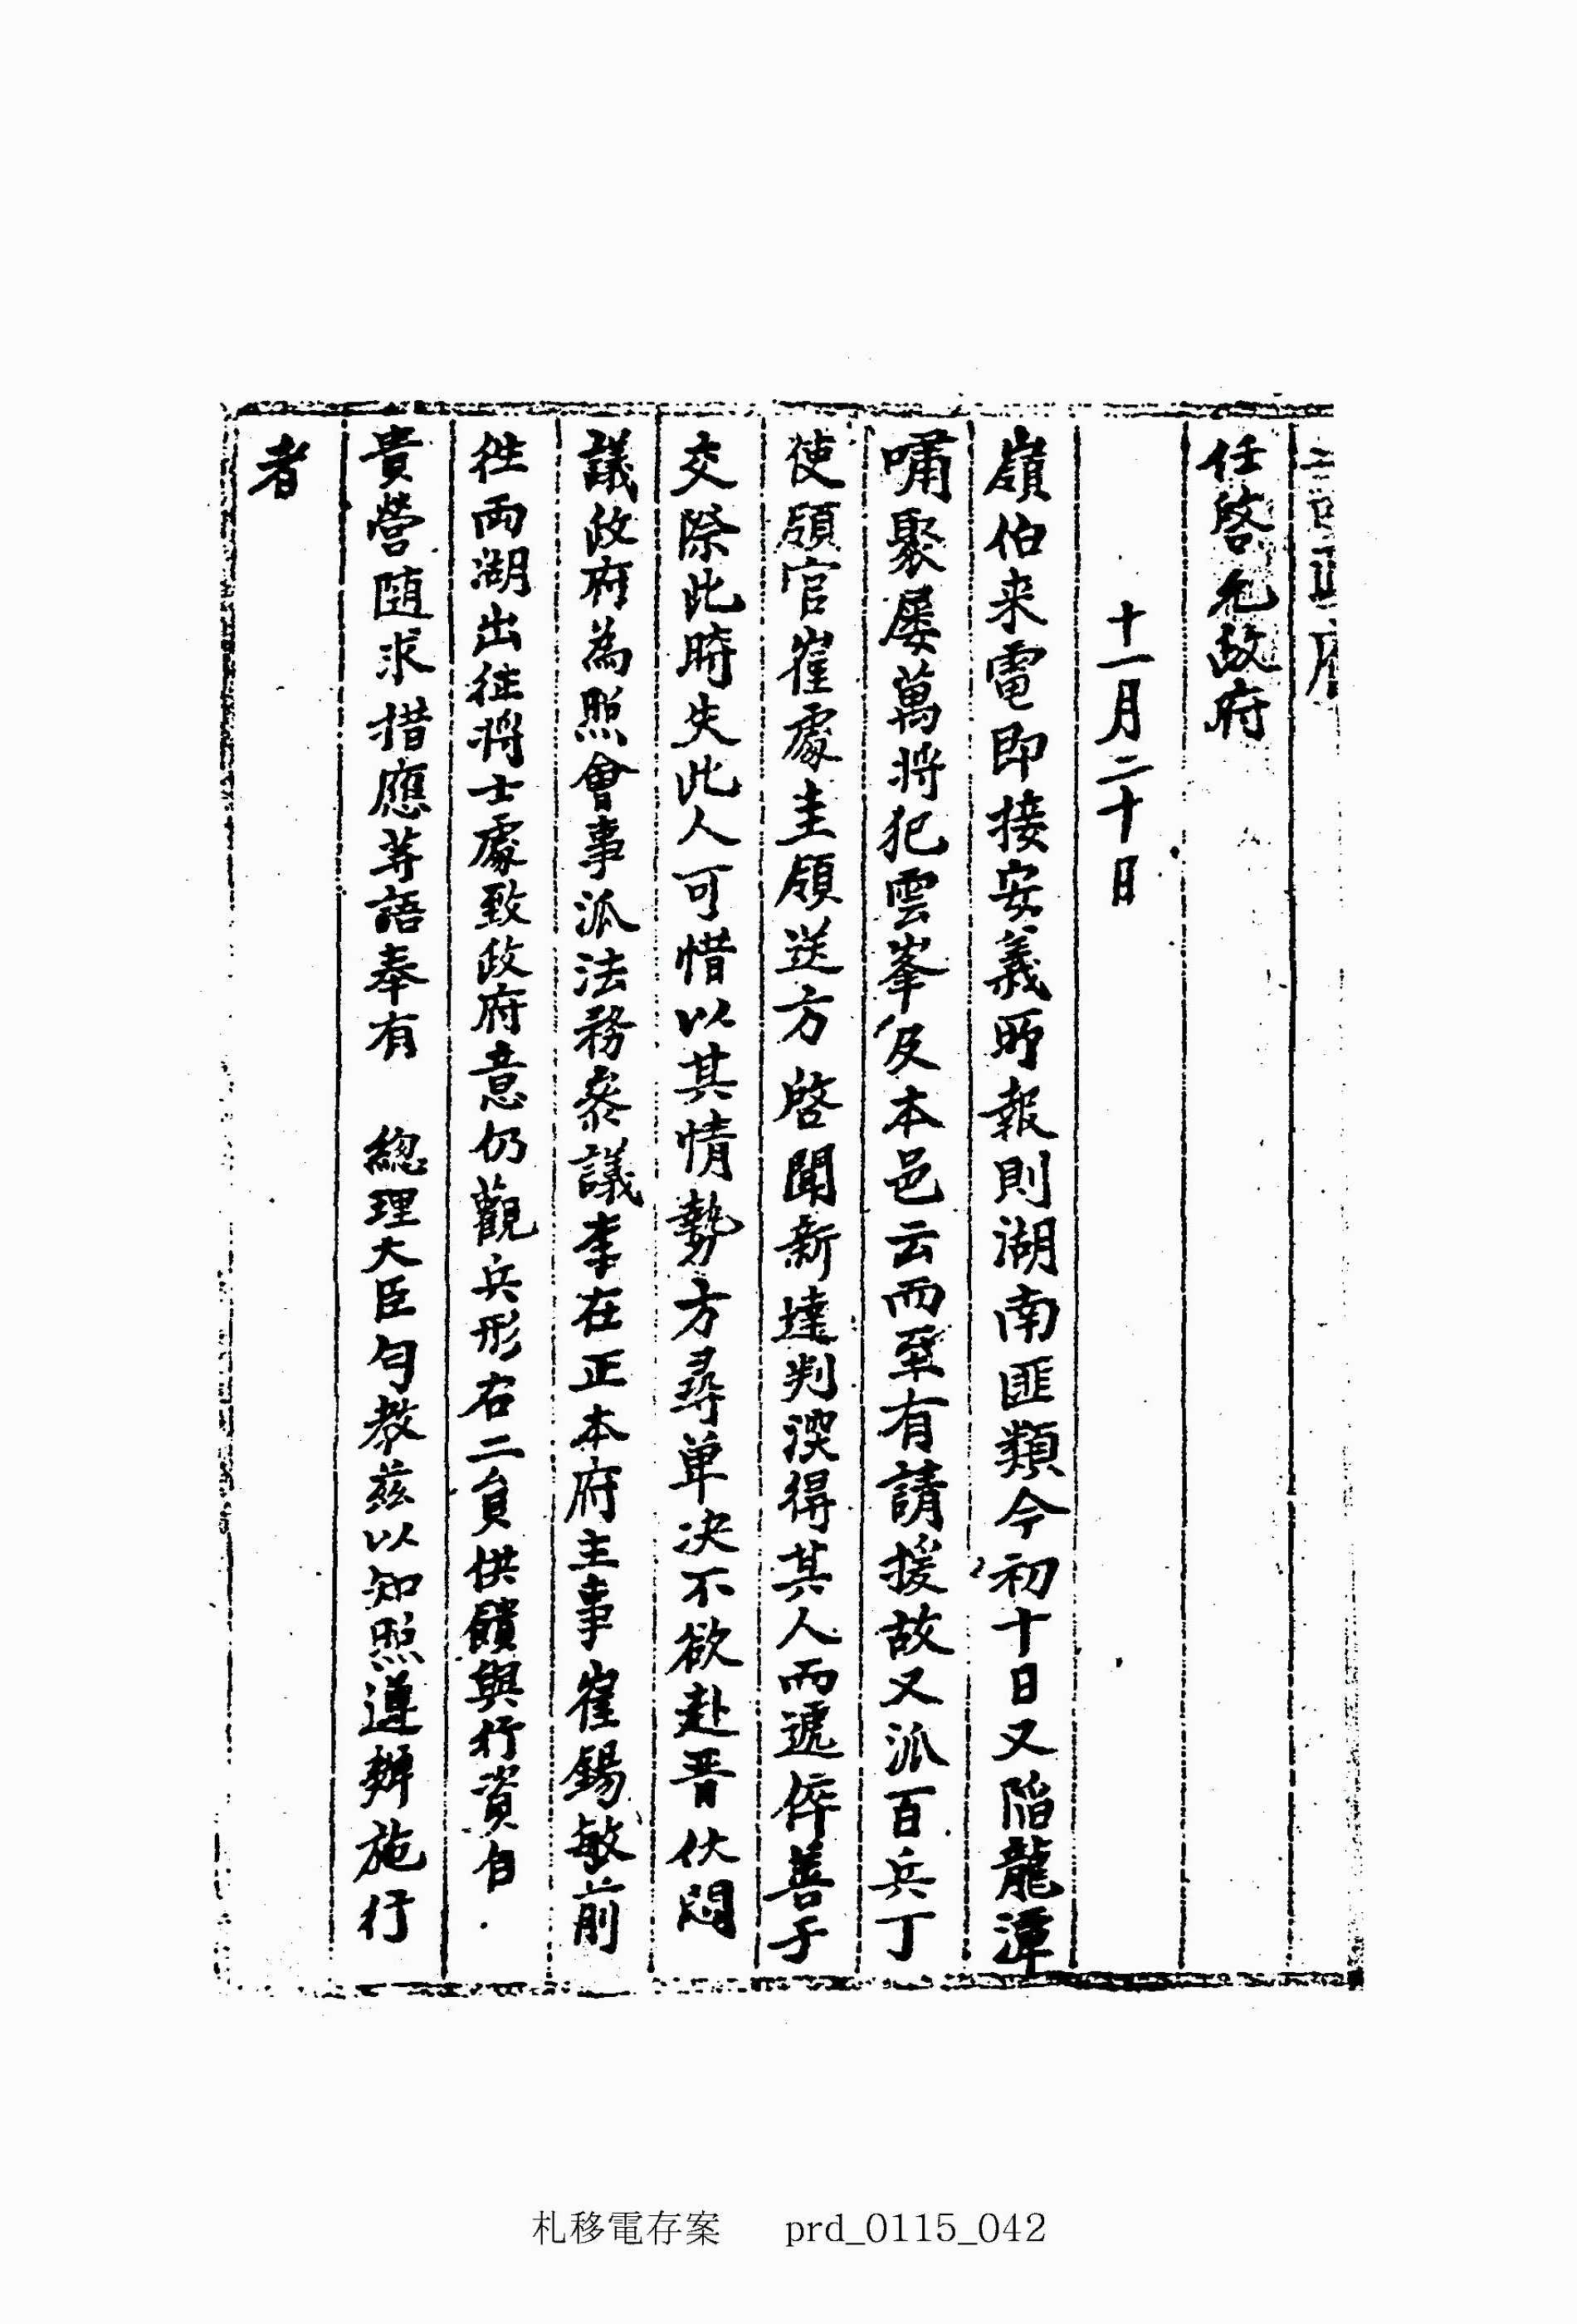 議政府
任啓允政府
十一月二十日
嶺伯来電即接安義所報則湖南匪類今初十日又陷龍潭
嘯聚屡萬將犯雲峯及本邑云而至有請援故又派百兵丁
使領官崔處圭領送方啓聞新達判湥得其人而遞倅善于
交際此時失此人可惜以其情勢方尋単决不欲赴晋伏悶
議政府為照會事派法務叅議李在正本府主事崔錫敏前
徃両湖出征將士處致政府意仍觀兵形右二員供饋與行資自
貴營随求措應等語奉有 總理大臣勻教玆以知照遵辦施行
者
札移電存案 prd_0115_042